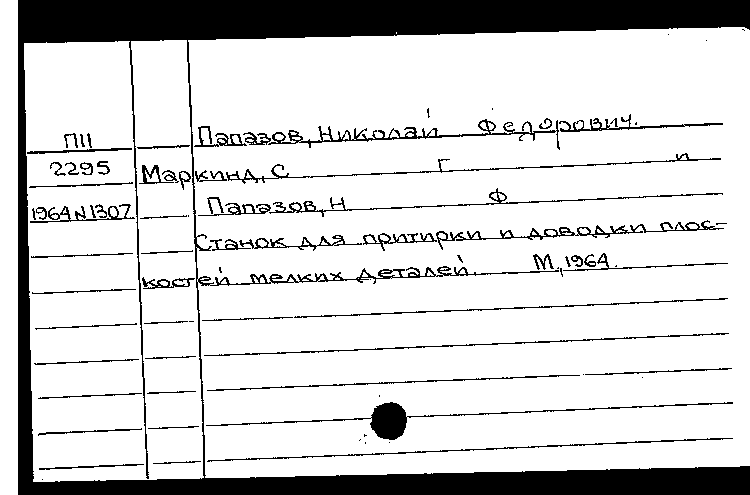 П11 Папазов, Николай Федорович.
2295 Маркинд, С Г и
1964 N 1307 Папазов, Н Ф
Станок для притирки и доводки плос-
костей мелких деталей. М, 1964.